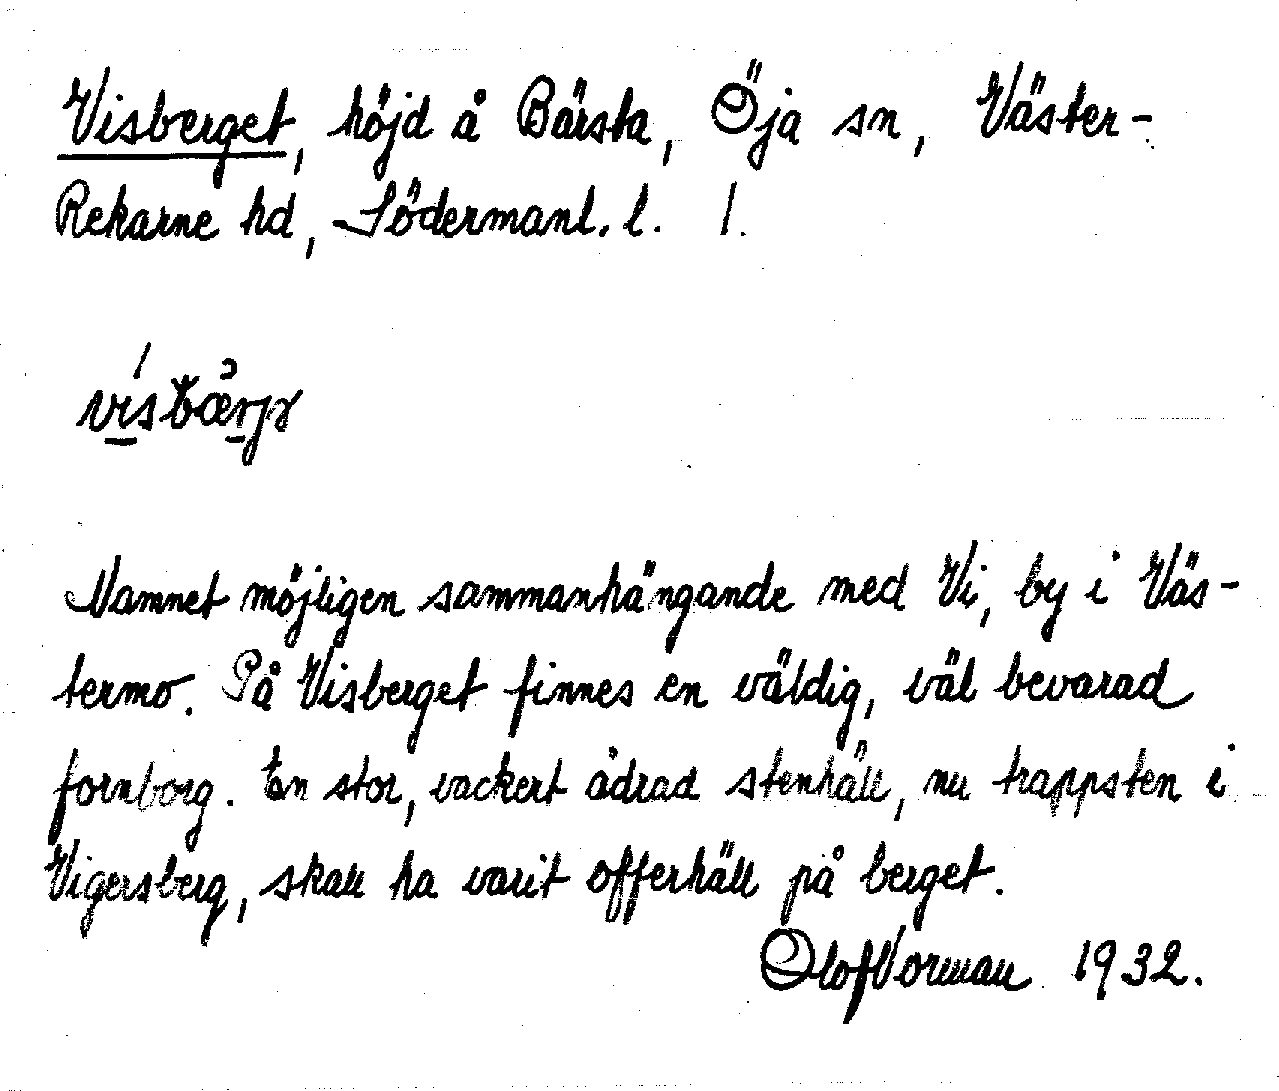 Visberget, höjd å Bärsta, Öja sn, Väster-
Rekarne hd, Södermanl. l. 1.
Namnet möjligen sammanhängande med Vi, by i Väs-
termo. På Visberget finnes en väldig, väl bevarad
fornborg. En stor, vackert ådrad stenhäll, nu trappsten i
Vigersberg, skall ha varit offerhäll på berget.
Olof Norman 1932.